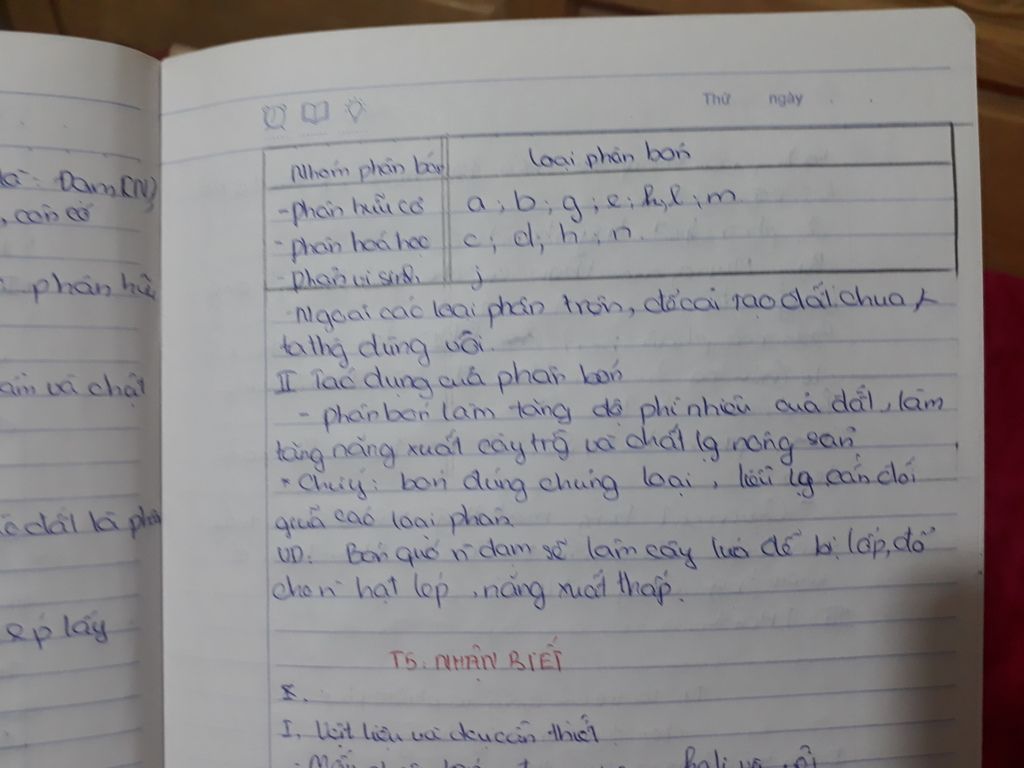 Thứ ngày
là: Đạm (N)
, còn có
phân hữu
và chất
đất là phân
ép lấy
Nhóm phân bón Loại phân bón
- phân hữu cơ a; b; g; e; k, l; m
- phân hoá học c; d; h; n.
- phân vi sinh j
- Ngoài các loại phân trên, để cải tạo đất chua
ta thg dùng vôi.
II Tác dụng của phân bón
- phân bón làm tăng độ phì nhiêu của đất, làm
tăng năng xuất cây trg và chất lg nông sản
* Chú ý: bón đúng chủng loại, liều lg cân đối
giữa các loại phân.
VD: Bón quá n` đạm sẽ làm cây lúa dễ bị lốp, đổ
cho n` hạt lép, năng xuất thấp.
T5. NHẬN BIẾT
I. Vật liệu và dcụ cần thiết
- Mẫu